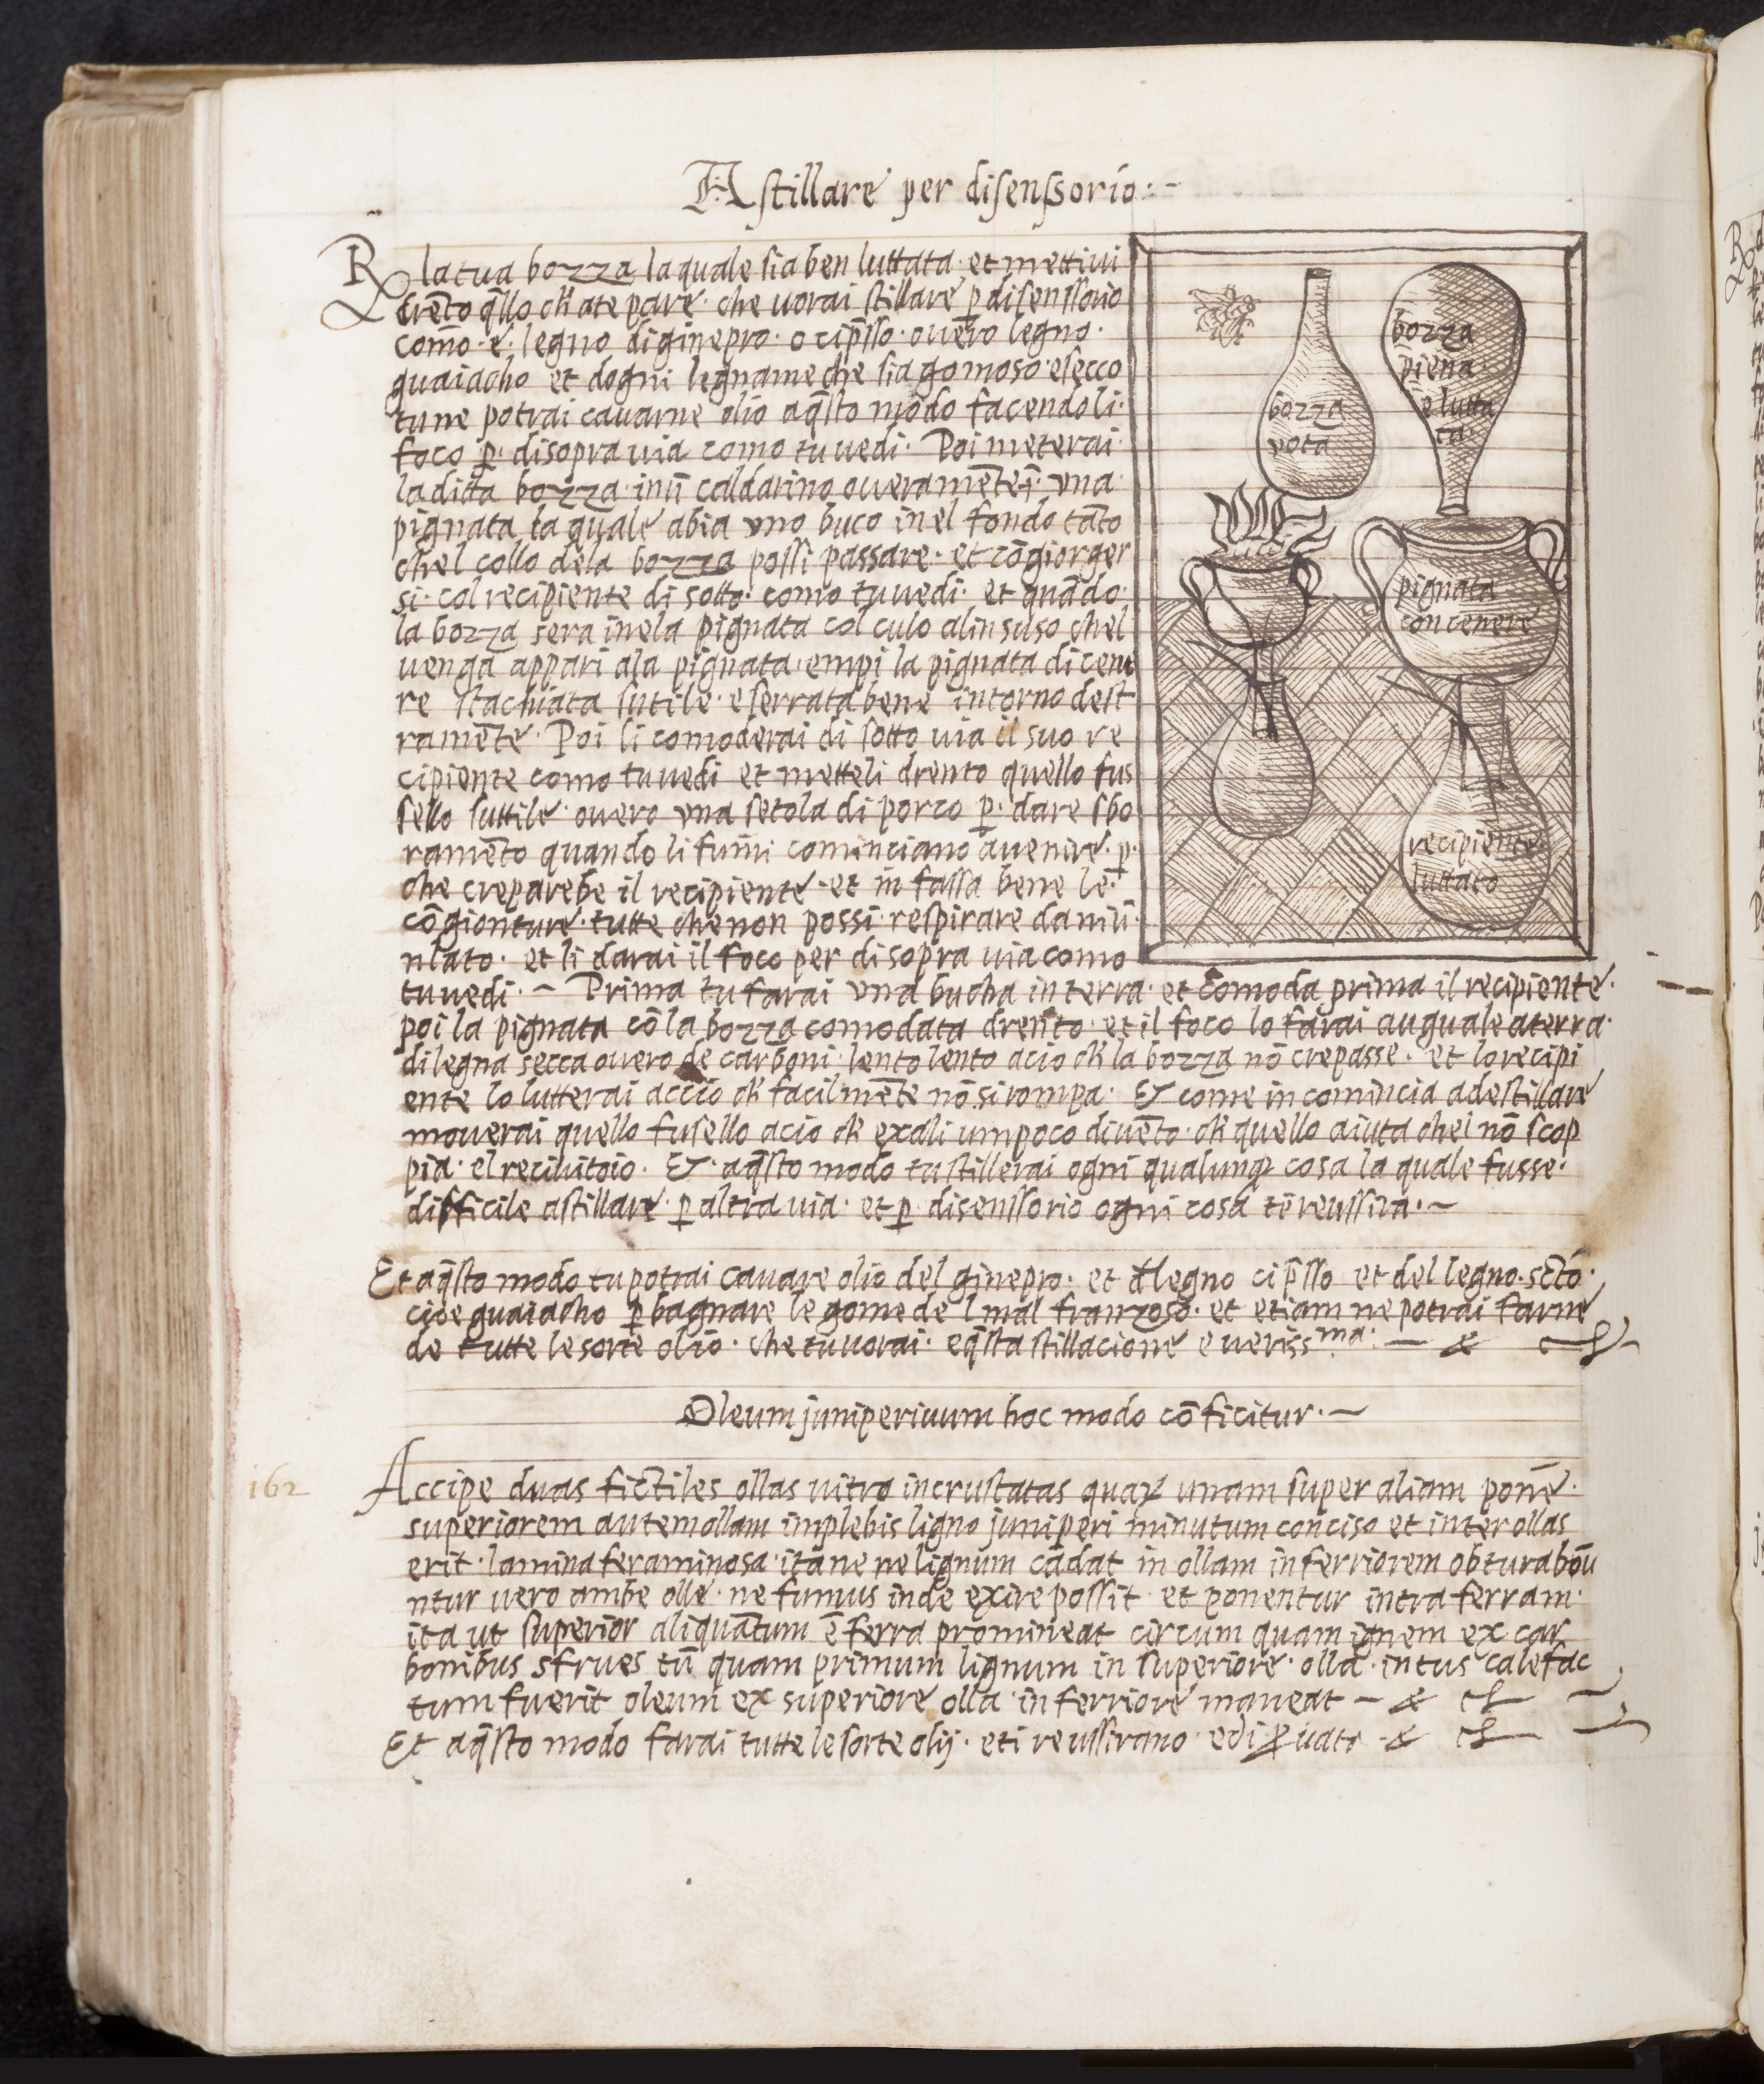 A stillare per disenssorio:~
℞ la tua bozza la quale sia ben luttata · et mettiui
drẽto q̃llo ch̃ ate pare · che uorai stillare p̱ disenssorio
como · e · legno di ginepro · o cip̃sso · ouero legno ·
guaiacho et dogni legname che sia gomoso · e secco
tu ne potrai cauarne olio a q̃sto modo facendoli ·
foco p̱ · disopra uia como tu uedi · Poi meterai ·
la ditta bozza · in ũ caldarino oueramẽte ĩ · vna ·
pignata la quale abia vno buco in el fondo tãto
chel collo dela bozza possi passare · et cõgiorger
si · col recipiente di sotto · como tu uedi · et quãdo ·
la bozza sera in ela pignata col culo alin suso chel
uenga appari ala pignata · empi la pignata di cene
re stachiata sutile · e serrata bene intorno dest
ramẽte · Poi li comoderai di sotto uia il suo re
cipiente como tu uedi et metteli drento quello fus
sello suttile · ouero vna setola di porco p̱ · dare sbo
ramẽto quando li fumi cominciano a uenire · p̱ ·
che creparebe il recipiente · et in fassa bene le ·
cõgionture · tutte che non possi · respirare da niũ ·
n lato · et li darai il foco per di sopra uia como
tu uedi · ~ Prima tu farai vna bucha in terra · et comoda prima il recipiente ·
poi la pignata cõ la bozza comodata drento · et il foco lo farai auguale aterra ·
di legna secca ouero de carboni · lento lento acio ch̃ la bozza nõ crepasse · et lo recipi
ente lo lutterai accio ch̃ facilmẽte nõ si rompa · Et come in comincia a destillare
mouerai quello fusello acio ch̃ exali umpoco di uẽto · ch̃ quello aiuta chel nõ scop
pia · el reciuitoio · Et · a q̃sto modo tu stillerai ogni qualunqꝫ cosa la quale fusse ·
difficile astillare · p̱ altra uia · et p̱ disenssorio ogni cosa ti reussira · ~
Et a q̃sto modo tu potrai cauare olio del ginepro · et d̃l legno cip̃sso et del legno · sc̃to ·
cioe guaiacho p̱ bagnare le gome de l mal franzoso · et etiam ne potrai farne
de tutte le sorte olio · che tu uorai · e q̃sta stillacione e uerissᵐᵃ · — &
Oleum juniperiuum hoc modo cõficitur · ~
162
Accipe duas fictiles ollas uitro incrustatas quaꝝ unam super aliam pone ·
superiorem autem ollam implebis ligno juniperi minutum conciso et inter ollas
erit · lamina feraminosa · ita ne ne lignum cadat in ollam inferriorem obturabõu
ntur uero ambe olle · ne fumus inde exire possit · et ponentur intra ferram ·
ita ut superior aliquatum ẽ ferra promineat circum quam ignem ex car
bonibus sfrues tũ quam primum lignum in superiore · olla · intus calefac
tum fuerit oleum ex superiore olla · inferriore maneat ~ &
Et a q̃sto modo farai tutte le sorte olij · et i reussirano · ed i ꝓuato · &
bozza
vota
bozza
piena
e lutta
ta ·
pignata
con cenere
recipiente
luttato